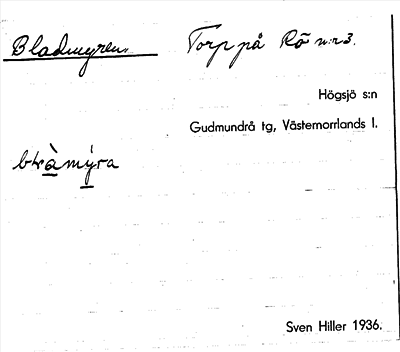 Bladmyren Torp på Rö nr 3.
Högsjö s:n
Gudmundrå tg, Västernorrlands l.
Sven Hiller 1936.